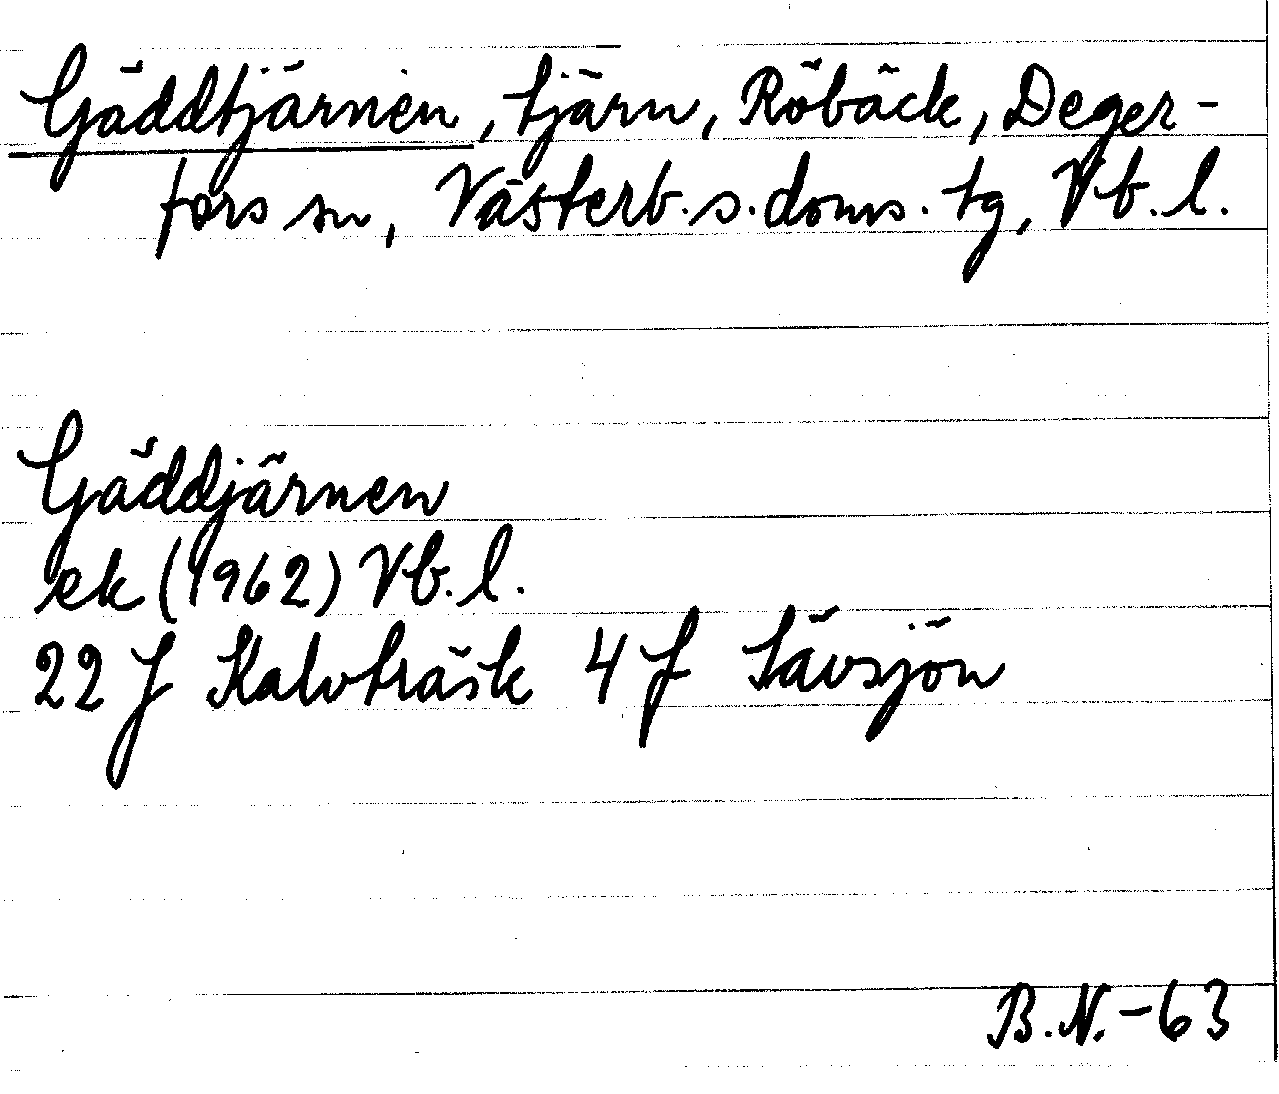 Gäddtjärnen, tjärn, Röbäck, Deger-
fors sn, Västerb. s. doms. tg, Vb. l.
Gäddjärnen
ek (1962) Vb. l.
22 J Kalvträsk 4 f Sävsjön
B.N.-63